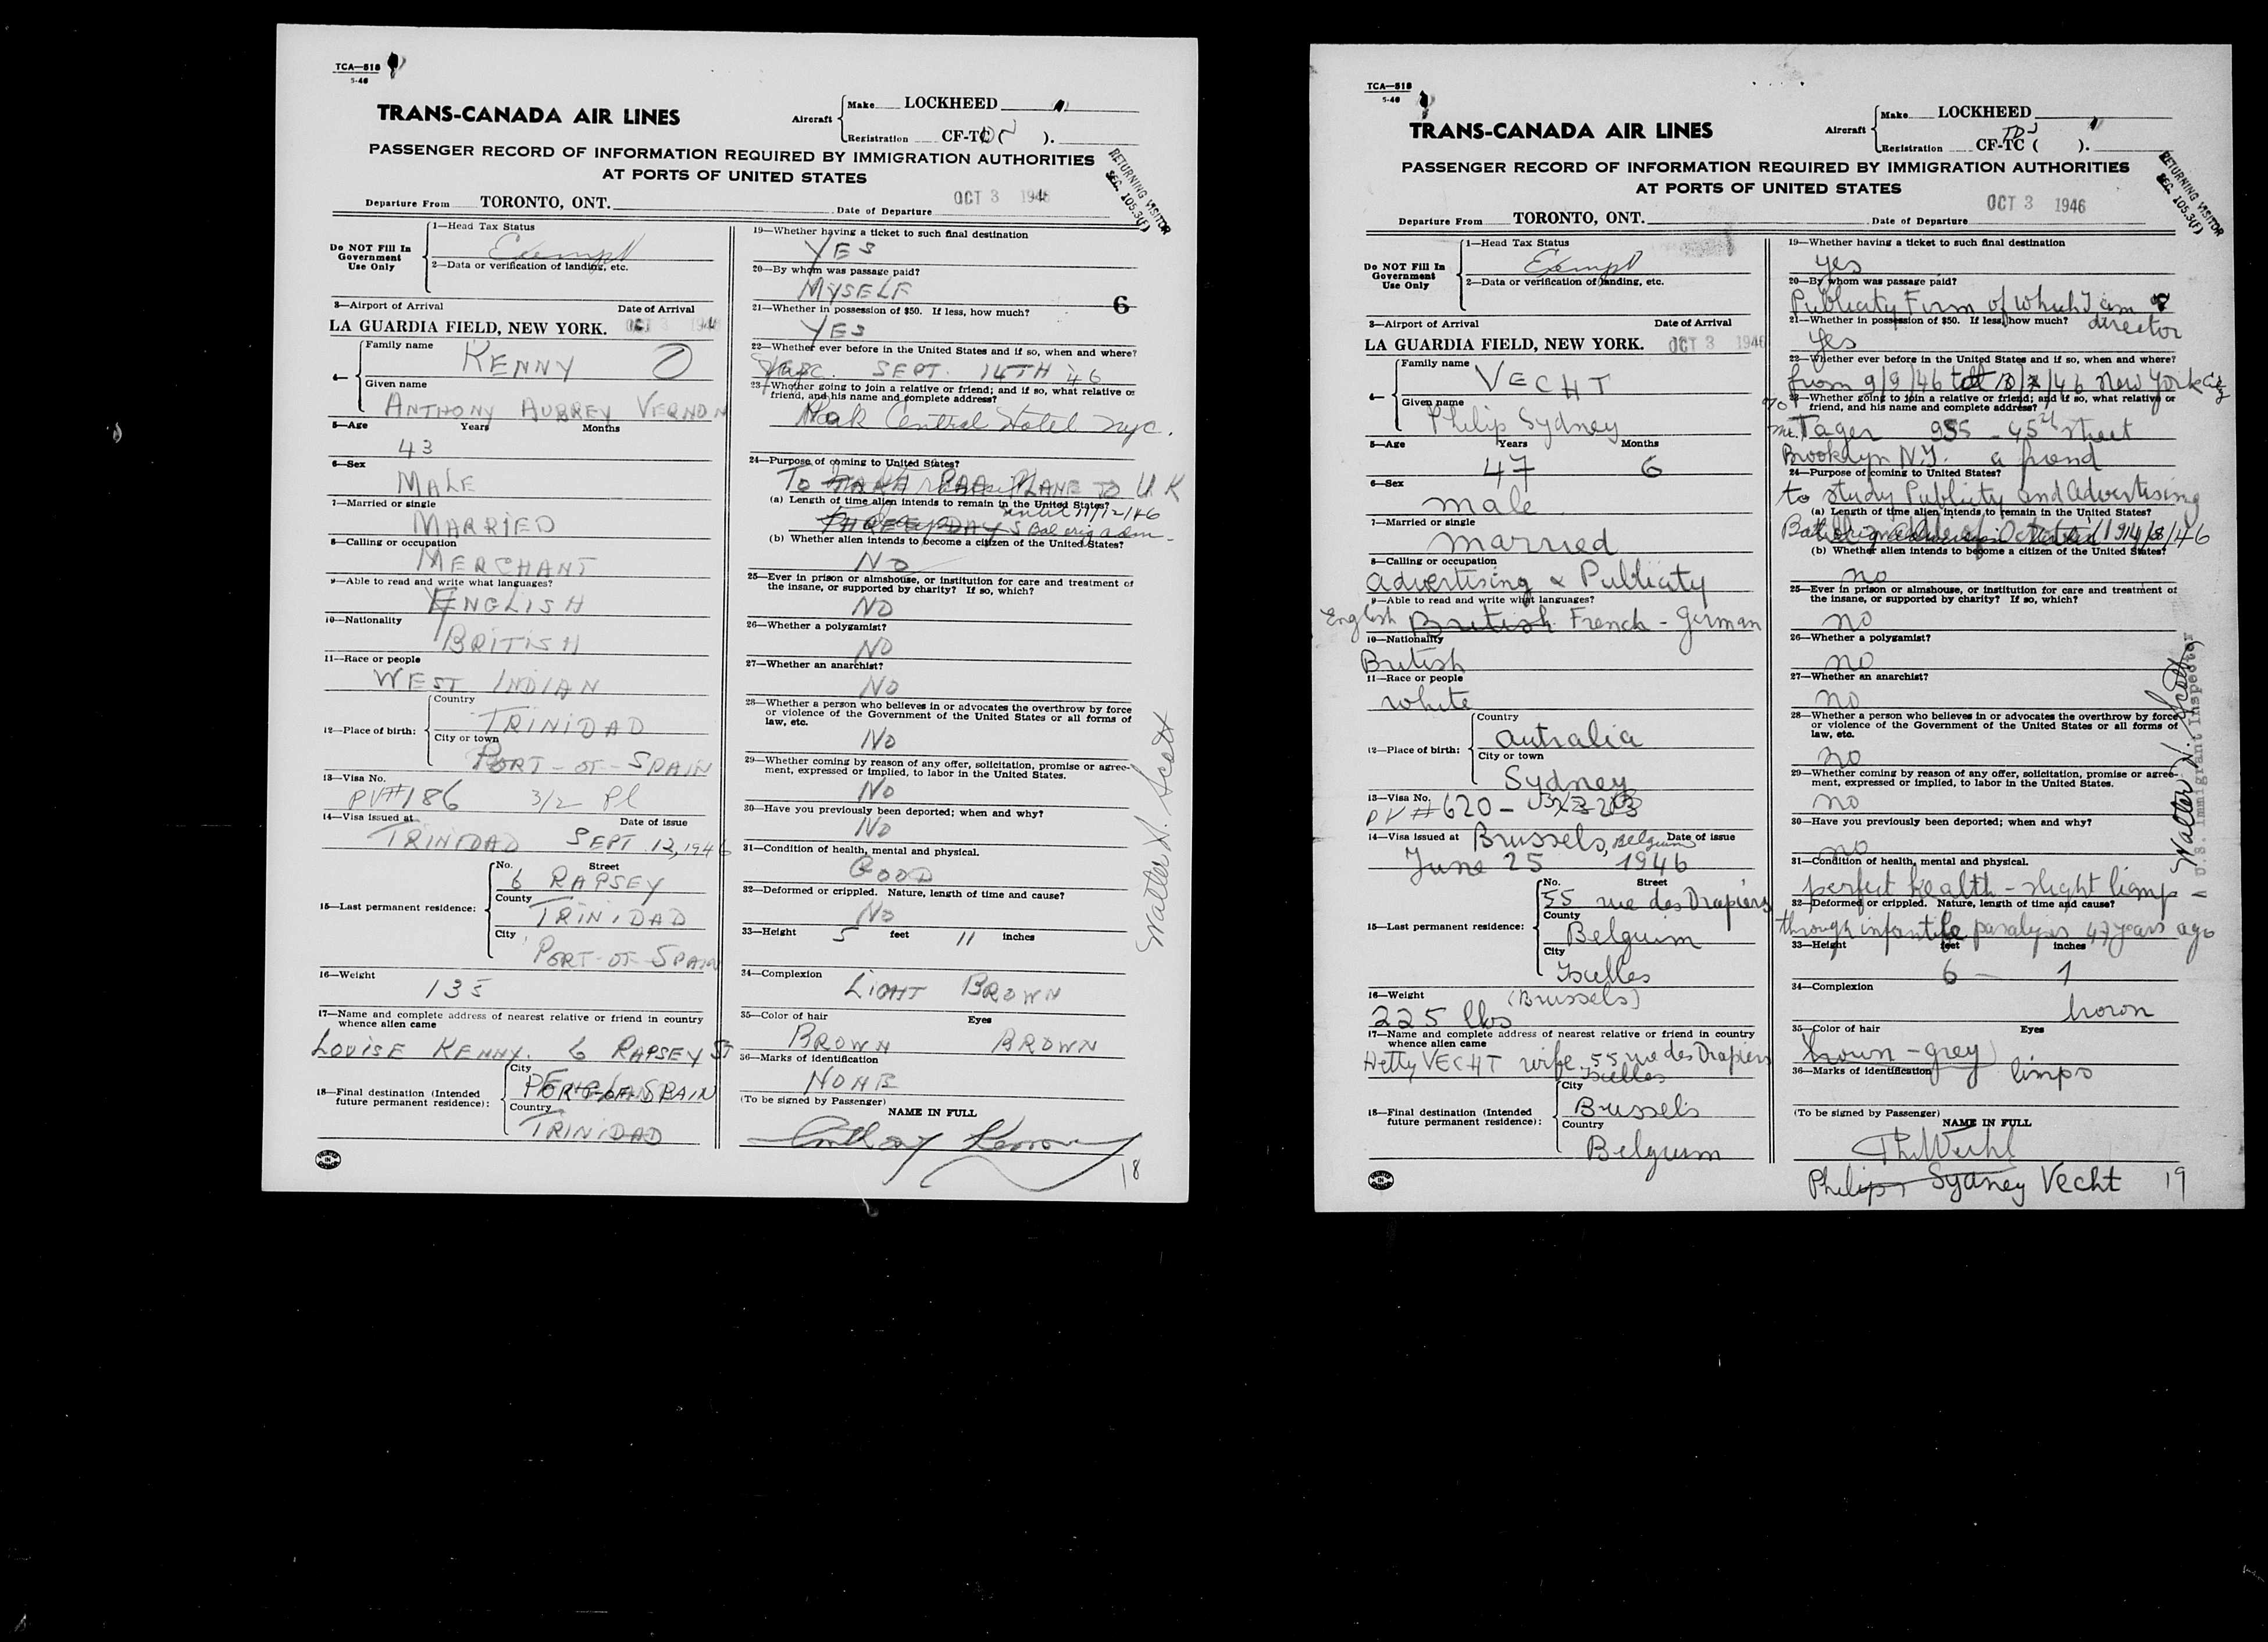 TCA—518
5-46
TRANS-CANADA AIR LINES
Aircraft
Make LOCKHEED
Registration CF-TC ( ).
PASSENGER RECORD OF INFORMATION REQUIRED BY IMMIGRATION AUTHORITIES
AT PORTS OF UNITED STATES
RETURNING VISITOR
SEC. 105.3(F)
Departure From TORONTO, ONT. Date of Departure OCT 3 1946
Do NOT Fill In
Government
Use Only
1—Head Tax Status
Exempt
2—Data or verification of landing, etc.
3—Airport of Arrival Date of Arrival
LA GUARDIA FIELD, NEW YORK. OCT 3 194
4—
Family name
KENNY
Given name
ANTHONY AUBREY VERNON
5—Age Years Months
43
6—Sex
MALE
7—Married or single
MARRIED
8—Calling or occupation
MERCHANT
9—Able to read and write what languages?
ENGLISH
10—Nationality
BRITISH
11—Race or people
WEST INDIAN
12—Place of birth:
Country
TRINIDAD
City or town
PORT-OF-SPAIN
13—Visa No.
PV#186 3/2 Pl
14—Visa issued at Date of issue
TRINIDAD SEPT. 12, 1946
15—Last permanent residence:
No. Street
6 RAPSEY
County
TRINIDAD
City
PORT-OF-SPAIN
16—Weight
135
17—Name and complete address of nearest relative or friend in country
whence alien came
LOUISE KENNY. 6 RAPSEY ST
18—Final destination (Intended
future permanent residence):
City
PORT-OF-SPAIN
Country
TRINIDAD
PRINTED IN CANADA
19—Whether having a ticket to such final destination
YES
20—By whom was passage paid?
MYSELF
6
21—Whether in possession of $50. If less, how much?
YES
22—Whether ever before in the United States and if so, when and where?
SEPT. 14TH 46
23—Whether going to join a relative or friend; and if so, what relative or
friend, and his name and complete address?
Park Central Hotel nyc.
24—Purpose of coming to United States?
TO PLANE TO U K
(a) Length of time alien intends to remain in the United States?
until 11/12/46
THREE DAYS Bal orig adm.
(b) Whether alien intends to become a citizen of the United States?
NO
25—Ever in prison or almshouse, or institution for care and treatment of
the insane, or supported by charity? If so, which?
NO
26—Whether a polygamist?
NO
27—Whether an anarchist?
NO
28—Whether a person who believes in or advocates the overthrow by force
or violence of the Government of the United States or all forms of
law, etc.
NO
29—Whether coming by reason of any offer, solicitation, promise or agree-
ment, expressed or implied, to labor in the United States.
NO
30—Have you previously been deported; when and why?
NO
31—Condition of health, mental and physical.
GOOD
32—Deformed or crippled. Nature, length of time and cause?
NO
33—Height 5 feet 11 inches
34—Complexion
LIGHT BROWN
35—Color of hair Eyes
BROWN BROWN
36—Marks of identification
NONE
(To be signed by Passenger)
NAME IN FULL
Anthony Kenny
18
Walter N. Scott
TCA—518
5-46
TRANS-CANADA AIR LINES
Aircraft
Make LOCKHEED
TDJ
Registration CF-TC ( ).
PASSENGER RECORD OF INFORMATION REQUIRED BY IMMIGRATION AUTHORITIES
AT PORTS OF UNITED STATES
RETURNING VISITOR
SEC. 105.3(F)
Departure From TORONTO, ONT. Date of Departure OCT 3 1946
Do NOT Fill In
Government
Use Only
1—Head Tax Status
Exempt
2—Data or verification of landing, etc.
3—Airport of Arrival Date of Arrival
LA GUARDIA FIELD, NEW YORK. OCT 3 1946
4—
Family name
VECHT
Given name
Philip Sydney
5—Age Years Months
47 6
6—Sex
male
7—Married or single
married
8—Calling or occupation
advertising & Publicity
9—Able to read and write what languages?
English British French - German
10—Nationality
British
11—Race or people
white
12—Place of birth:
Country
autralia
City or town
Sydney
13—Visa No.
PV #620 -
14—Visa issued at Brussels, Belgium Date of issue
June 25 1946
15—Last permanent residence:
No. Street
55 rue des Drapiers
County
Belguim
City
Ixelles
(Brussels)
16—Weight
225 lbs
17—Name and complete address of nearest relative or friend in country
whence alien came
Hetty VECHT wife 55 rue des Drapiers
Ixelles
18—Final destination (Intended
future permanent residence):
City
Brussels
Country
Belgium
PRINTED IN CANADA
19—Whether having a ticket to such final destination
yes
20—By whom was passage paid?
Publicity Firm of which I am
director
21—Whether in possession of $50. If less, how much?
yes
22—Whether ever before in the United States and if so, when and where?
from 9/9/46 New York City
23—Whether going to join a relative or friend; and if so, what relative or
friend, and his name and complete address?
To
Mr. Tager 955 - 45th street
Brooklyn N.Y. a friend
24—Purpose of coming to United States?
to study Publicity and advertising
(a) Length of time alien intends to remain in the United States?
(b) Whether alien intends to become a citizen of the United States?
no
25—Ever in prison or almshouse, or institution for care and treatment of
the insane, or supported by charity? If so, which?
no
26—Whether a polygamist?
no
27—Whether an anarchist?
no
28—Whether a person who believes in or advocates the overthrow by force
or violence of the Government of the United States or all forms of
law, etc.
no
29—Whether coming by reason of any offer, solicitation, promise or agree-
ment, expressed or implied, to labor in the United States.
no
30—Have you previously been deported; when and why?
no
31—Condition of health, mental and physical.
perfect health - slight limp
32—Deformed or crippled. Nature, length of time and cause?
through infantile paralysis 47 years ago
33—Height feet inches
6 - 1
34—Complexion
35—Color of hair Eyes
brown - grey brown
36—Marks of identification
limps
(To be signed by Passenger)
NAME IN FULL
Philip Sydney Vecht
19
Walter N. Scott
U.S. Immigrant Inspector